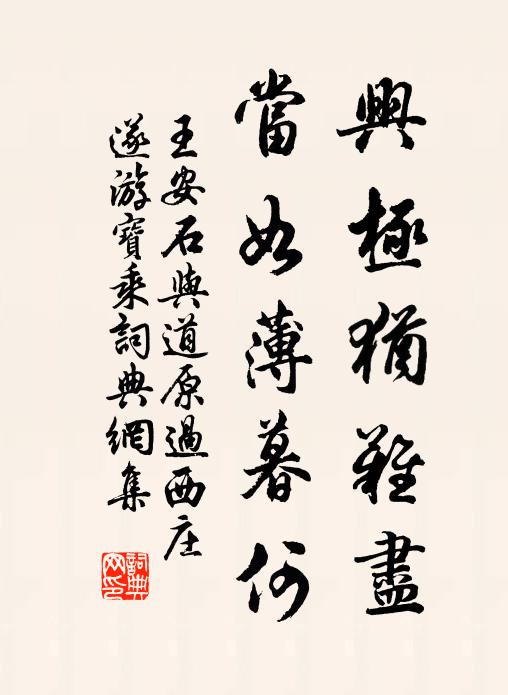 興極猶難盡
當如薄暮何
王安石與道原過西庄
遂游寶乘詞典網集
詞典
网印